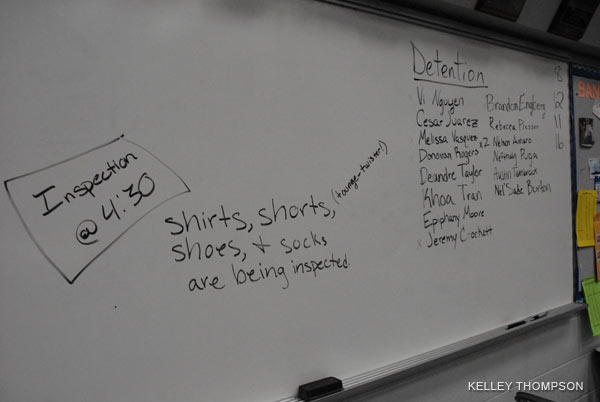 Inspection
@ 4:30
shirts, shorts, (tounge-twister!)
shoes, + socks
are being inspected.
Detention
Vi Nguyen
Cesar Juarez
Melissa Vasquez
Donovan Rogers x2
Deandre Taylor
Khoa Tran
Epiphany Moore
x Jeremy Crockett
Brandon England
Rebecca
Nelson Amaro
Neftaly Puga
Austin
Nel'Sade Burton
8
12
11
16
BAN
KELLEY THOMPSON